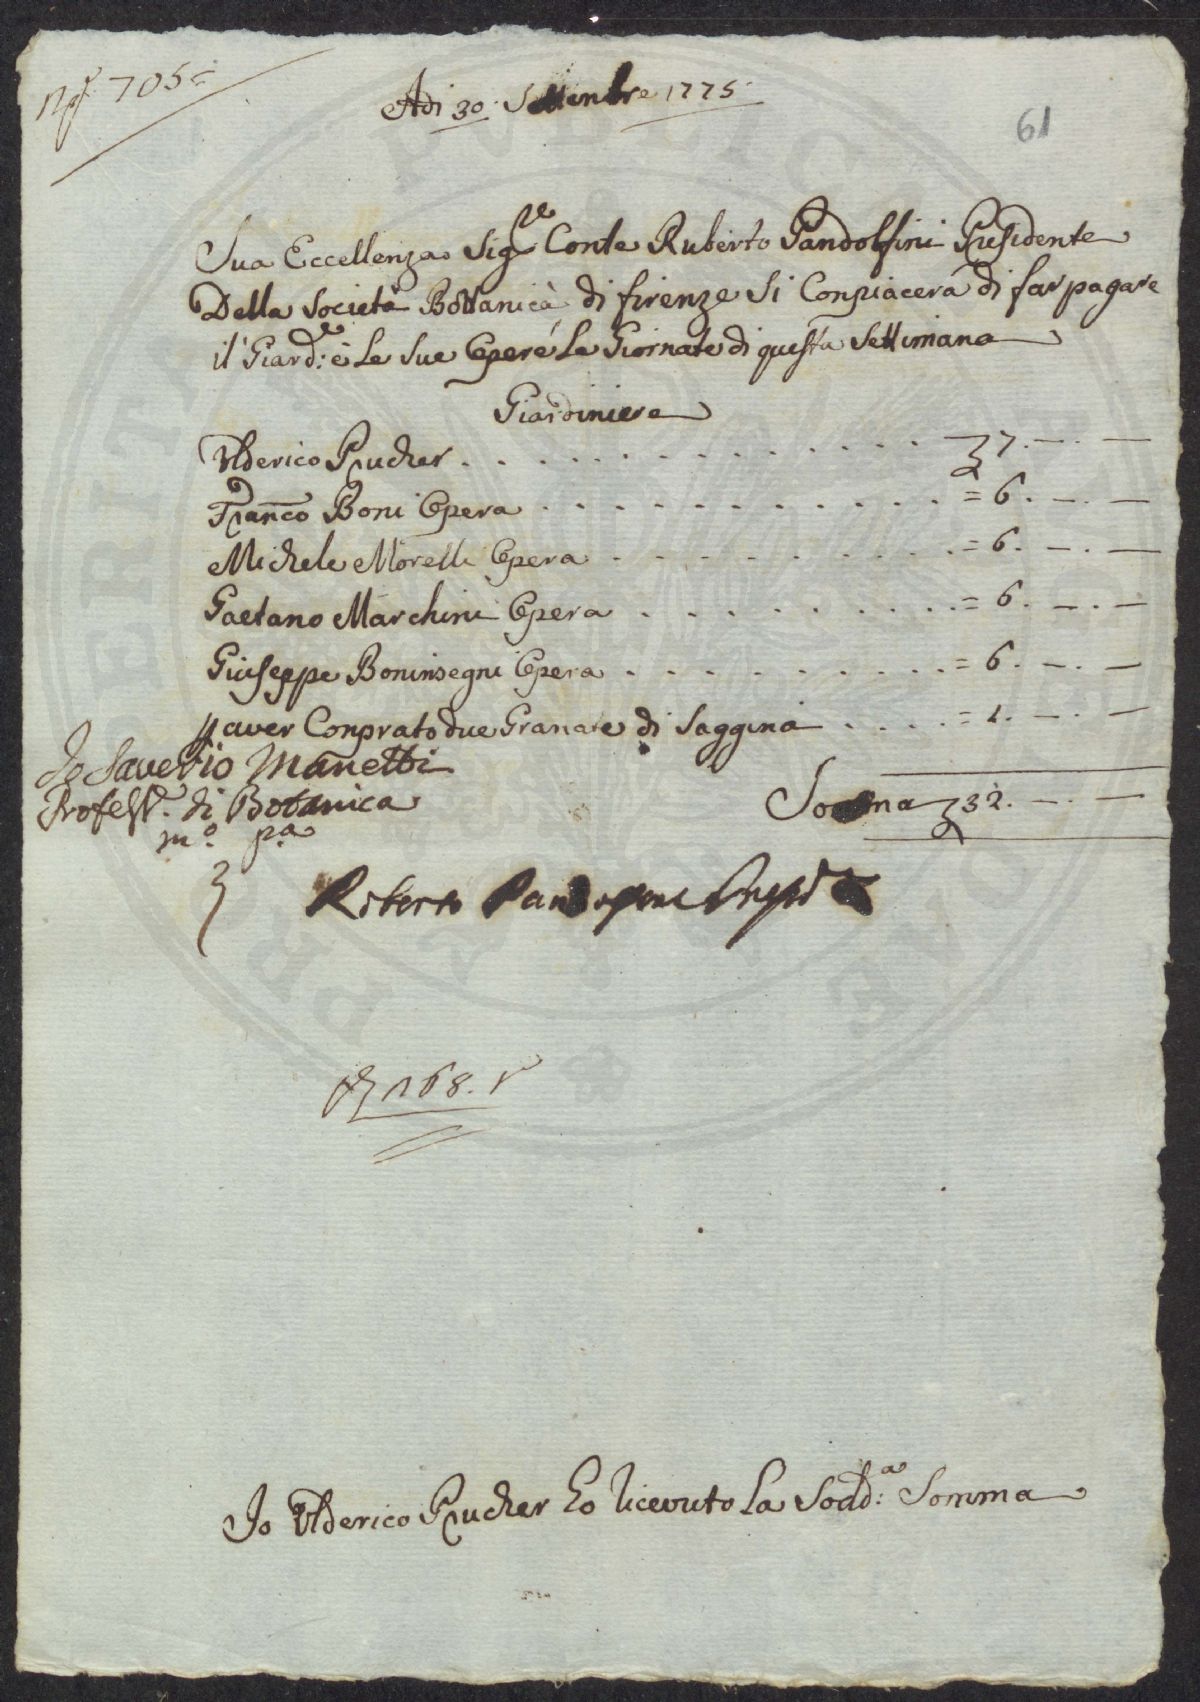 705
Adi 30. Settenbre 1775.
61
Sua Eccellenza Sig.re Conte Ruberto Pandolfini Presidente
Della Società Bottanicà di firenze Si Conpiacerà di far pagare
il Giard.e è Le Sue Opere Le Giornate di questa Settimana
Giardiniere
Ulderico Prucher . . . . . . . . . . . . 7. — . —
Franco Boni Opera . . . . . . . . . . . = 6. — . —
Michele Morelli Opera . . . . . . . . . = 6. — . —
Gaetano Marchini Opera . . . . . . . . . = 6. — . —
Giuseppe Boninsegni Opera . . . . . . . . . = 6. — . —
p aver Conprato due Granate di Saggina . . . . = 1. — . —
Io Saverio Manetti
Profess.e di Botanica
m.o p.a
Somma 32. — . —
Roberto Pandolfini Presid.e
168.
Io Ulderico Prucher Ho Ricevuto La Sodd.a Somma
PUBLICAE